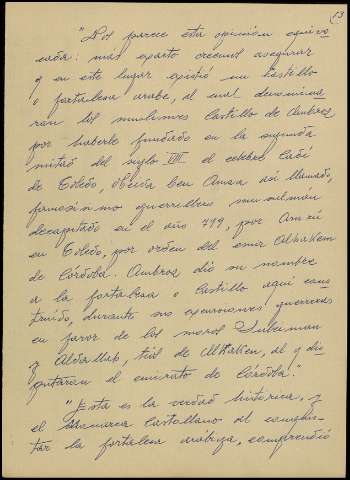 13
"Nos parece esta opinión equivo-
cada: más exacto creemos asegurar
q en este lugar existió un Castillo
o fortaleza arabe, al cual denomina
ran los muslimes Castillo de Ambroz
por haberle fundado en la segunda
mitad del siglo VIII el celebre Cadí
de Toledo, Obeida ben Amza así llamado,
famosísimo guerrillero musulmán
decapitado en el año 799, por Amrú
en Toledo, por orden del emir Alhakem
de Córdoba. Ambroz dió su nombre
a la fortaleza o Castillo aquí cons
truido, durante sus excursiones guerreras
en favor de los moros Suleiman
y Abdallah, tíos de Alhaken, al q dis-
putaran el emirato de Córdoba."
"Esta es la verdad histórica, y
el Monarca Castellano al conquis-
tar la fortaleza arabiga, comprendió